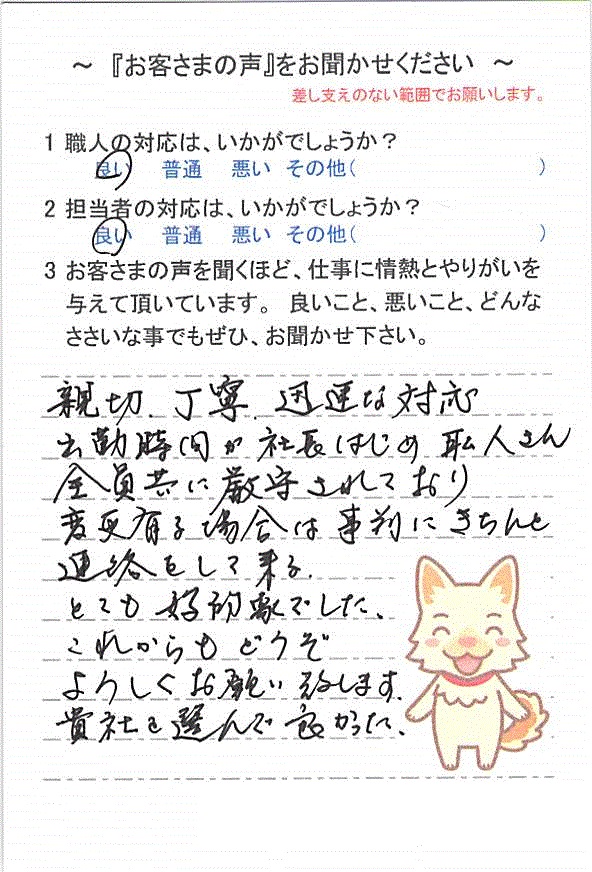 ~ 『お客さまの声』をお聞かせください ~
差し支えのない範囲でお願いします。
1 職人の対応は、いかがでしょうか？
良い 普通 悪い その他( )
2 担当者の対応は、いかがでしょうか？
良い 普通 悪い その他( )
3 お客さまの声を聞くほど、仕事に情熱とやりがいを
与えて頂いています。 良いこと、悪いこと、どんな
ささいな事でもぜひ、お聞かせ下さい。
親切、丁寧、迅速な対応
出勤時間が社長はじめ職人さん
全員共に厳守されており
変更有る場合は事前にきちんと
連絡をして来る。
とても好印象でした、
これからもどうぞ
よろしくお願い致します。
貴社を選んで良かった、